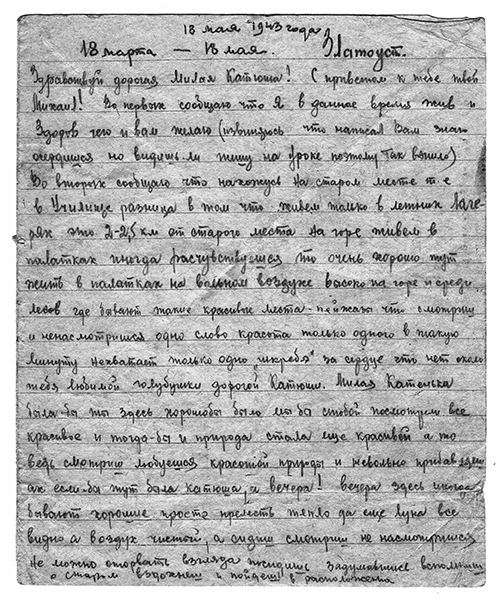 18 мая 1943 года
18 марта — 18 мая. Златоуст.
Здравствуй дорогая Милая Катюша! С приветом к тебе твой
Михаил! Во первых сообщаю что Я в данное время жив и
Здоров чего и вам желаю (извиняюсь что написал Вам знаю
сердишся но видишь ли пишу на уроке поэтому так вышло)
Во вторых сообщаю что нахожусь на старом месте т.е
в Училище разница в том что живем только в летних Лаге-
рях это 2-2,5 км от старого места на горе живем в
палатках иногда расчувствуешся то очень хорошо тут
жить в палатках на вольном воздухе высоко на горе и среди
лесов где бывают такие красивые места - пейзажи что смотриш
и ненасмотришся одно слово красота только одного в такую
минуту нехватает только одно "шкребя" за сердце что нет около
тебя любимой голубушки дорогой Катюши. Милая Катенька
была-бы ты здесь хорошобы было мы бы стобой посмотрели все
красивое и тогда-бы и природа стала еще красивей а то
ведь смотриш любуешся красотой природы и невольно прибав
ах если-бы тут была катюша, а вечера! вечера здесь иногда
бывают хорошие просто прелесть тепло да еще луна все
видно а воздух чистой, а сидиш смотриш не насмотришся
Не можно оторвать взгляда посидишь задумавшись вспомниш
о старом вздохнеш и пойдеш в расположение